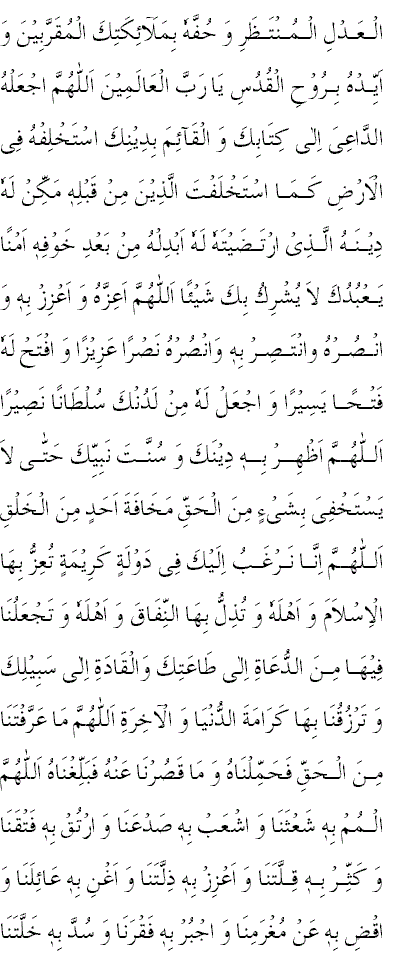 الْعَدْلِ الْمُنْتَظَرِ وَ حُفَّهُ بِمَلَآئِكَتِكَ الْمُقَرَّبِيْنَ وَ
اَيِّدْهُ بِرُوْحِ الْقُدُسِ يَا رَبَّ الْعَالَمِيْنَ اَللّٰهُمَّ اجْعَلْهُ
الدَّاعِىَ اِلٰى كِتَابِكَ وَ الْقَآئِمَ بِدِيْنِكَ اسْتَخْلِفْهُ فِى
الْاَرْضِ كَمَا اسْتَخْلَفْتَ الَّذِيْنَ مِنْ قَبْلِهٖ مَكِّنْ لَهٗ
دِيْنَهُ الَّذِىْ ارْتَضَيْتَهٗ لَهٗ اَبْدِلْهُ مِنْ بَعْدِ خَوْفِهٖ اَمْنًا
يَعْبُدُكَ لاَ يُشْرِكُ بِكَ شَيْئًا اَللّٰهُمَّ اَعِزَّهُ وَ اَعْزِزْ بِهٖ وَ
انْصُرْهُ وانْتَصِرْ بِهٖ وَانْصُرْهُ نَصْرًا عَزِيْزًا وَ افْتَحْ لَهٗ
فَتْحًا يَسِيْرًا وَ اجْعَلْ لَهٗ مِنْ لَدُنْكَ سُلْطَانًا نَصِيْرًا
اَللّٰهُمَّ اَظْهِرْ بِهٖ دِيْنَكَ وَ سُنَّتَ نَبِيِّكَ حَتّٰى لاَ
يَسْتَخْفِىَ بِشَىْءٍ مِنَ الْحَقِّ مَخَافَةَ اَحَدٍ مِنَ الْخَلْقِ
اَللّٰهُمَّ اِنَّا نَرْغَبُ اِلَيْكَ فِى دَوْلَةٍ كَرِيْمَةٍ تُعِزُّ بِهَا
الْاِسْلاَمَ وَ اَهْلَهٗ وَ تُذِلُّ بِهَا النِّفَاقَ وَ اَهْلَهٗ وَ تَجْعَلُنَا
فِيْهَا مِنَ الدُّعَاةِ اِلٰى طَاعَتِكَ وَالْقَادَةِ اِلٰى سَبِيْلِكَ
وَ تَرْزُقُنَا بِهَا كَرَامَةَ الدُّنْيَا وَ الْاٰخِرَةِ اَللّٰهُمَّ مَا عَرَّفْتَنَا
مِنَ الْحَقِّ فَحَمِّلْنَاهُ وَ مَا قَصُرْنَا عَنْهُ فَبَلِّغْنَاهُ اَللّٰهُمَّ
الْمُمْ بِهٖ شَعْثَنَا وَ اشْعَبْ بِهٖ صَدْعَنَا وَ ارْتُقْ بِهٖ فَتْقَنَا
وَ كَثِّرْ بِهٖ قِلَّتَنَا وَ اَعْزِزْ بِهٖ ذِلَّتَنَا وَ اَغْنِ بِهٖ عَائِلَنَا وَ
اقْضِ بِهٖ عَنْ مُغْرَمِنَا وَ اجْبُرْ بِهٖ فَقْرَنَا وَ سُدَّ بِهٖ خَلَّتَنَا